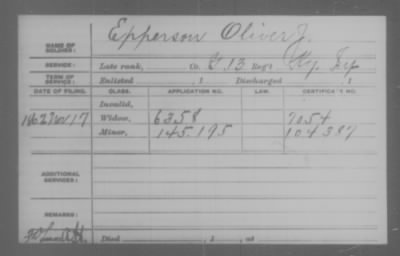 NAME OF SOLDIER: Epperson Oliver J.
SERVICE: Late rank, Co. 13 Reg't Ky.
TERM OF SERVICE: Enlisted , 1 Discharged , 1
DATE OF FILING. CLASS. APPLICATION NO. LAW. CERTIFICATE NO.
Invalid,
1862 Nov 17 Widow, 6358 7054
Minor, 145.195 104387
ADDITIONAL SERVICES:
REMARKS:
Died , 1 , at